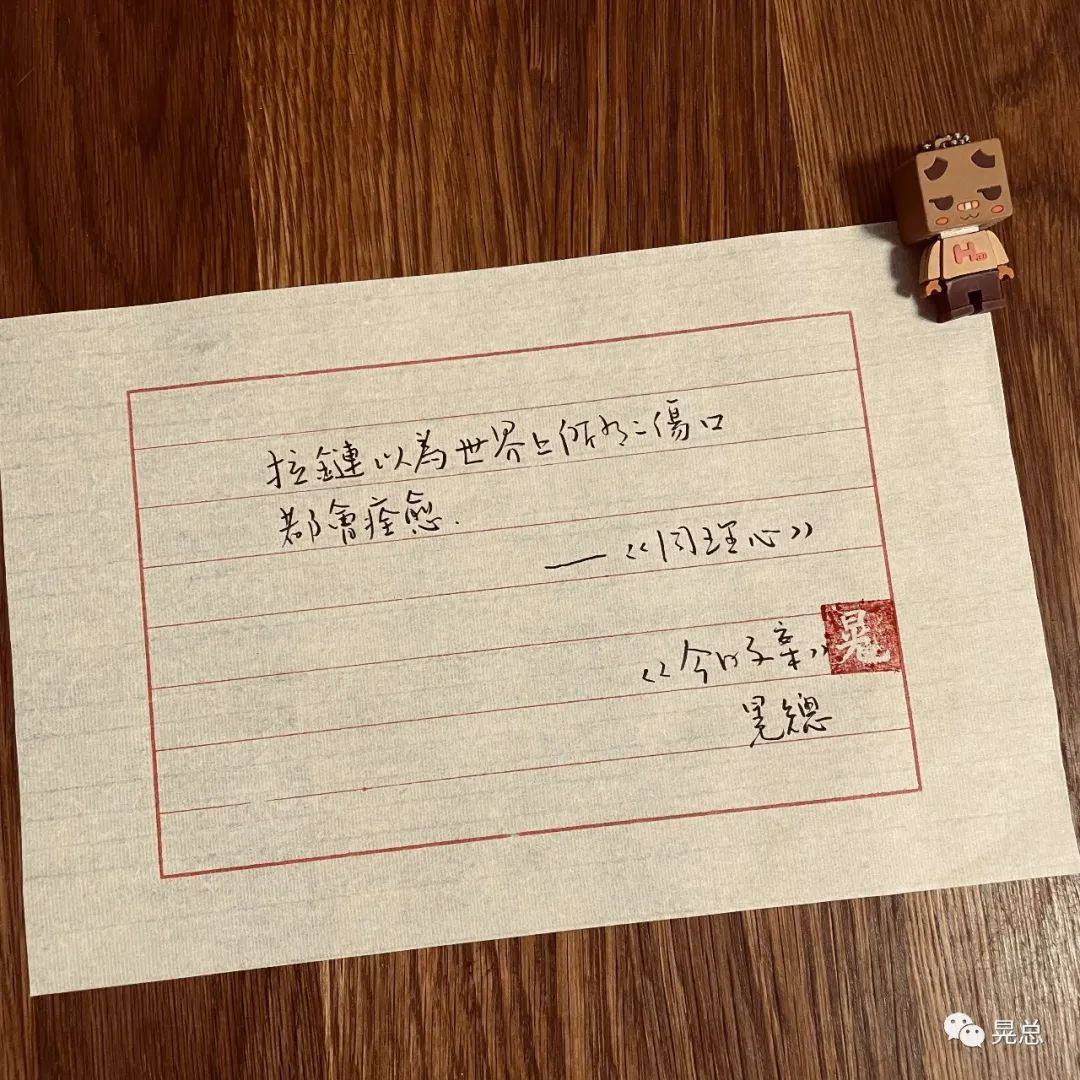 拉鏈以為世界上所有傷口
都會痊愈.
——《同理心》
《今日文案》
晃
晃總
晃总